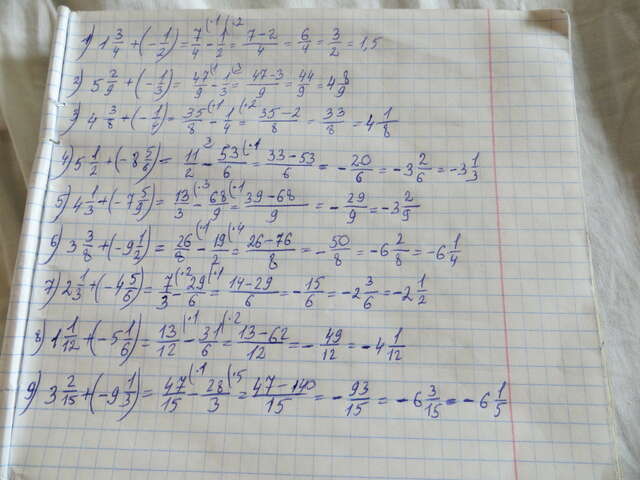 1) 1 3/4 + (-1/2) = 7/4 (·1 - 1/2 (·2 = 7-2/4 = 6/4 = 3/2 = 1,5
2) 5 2/9 + (-1/3) = 47/9 (·1 - 1/3 (·3 = 47-3/9 = 44/9 = 4 8/9
3) 4 3/8 + (-1/4) = 35/8 (·1 - 1/4 (·2 = 35-2/8 = 33/8 = 4 1/8
4) 5 1/2 + (-8 5/6) = 11/2 (3 - 53/6 (·1 = 33-53/6 = -20/6 = -3 2/6 = -3 1/3
5) 4 1/3 + (-7 5/9) = 13/3 (·3 - 68/9 (·1 = 39-68/9 = -29/9 = -3 2/9
6) 3 3/8 + (-9 1/2) = 26/8 (·1 - 19/2 (·4 = 26-76/8 = -50/8 = -6 2/8 = -6 1/4
7) 2 1/3 + (-4 5/6) = 7/3 (·2 - 29/6 (·1 = 14-29/6 = -15/6 = -2 3/6 = -2 1/2
8) 1 1/12 + (-5 1/6) = 13/12 (·1 - 31/6 (·2 = 13-62/12 = -49/12 = -4 1/12
9) 3 2/15 + (-9 1/3) = 47/15 (·1 - 28/3 (·5 = 47-140/15 = -93/15 = -6 3/15 = -6 1/5